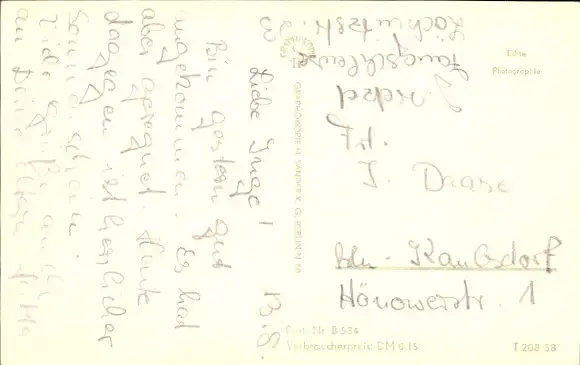 13.8.
Liebe Inge!
Bin gestern gut
angekommen. Es hat
aber geregnet. Heute
dagegen ist herrlicher
Sonnenschein.
Liebe Grüße auch
an Deine Eltern
Echte
Photographie
Frl.
I. Daase
Bln.-Kaulsdorf
Hönowerstr. 1
GRAPHOKOPIE H. SANDER K. G. BERLIN N 58
Best. Nr. B 534
Verbraucherpreis: DM 0.15
T 208 58